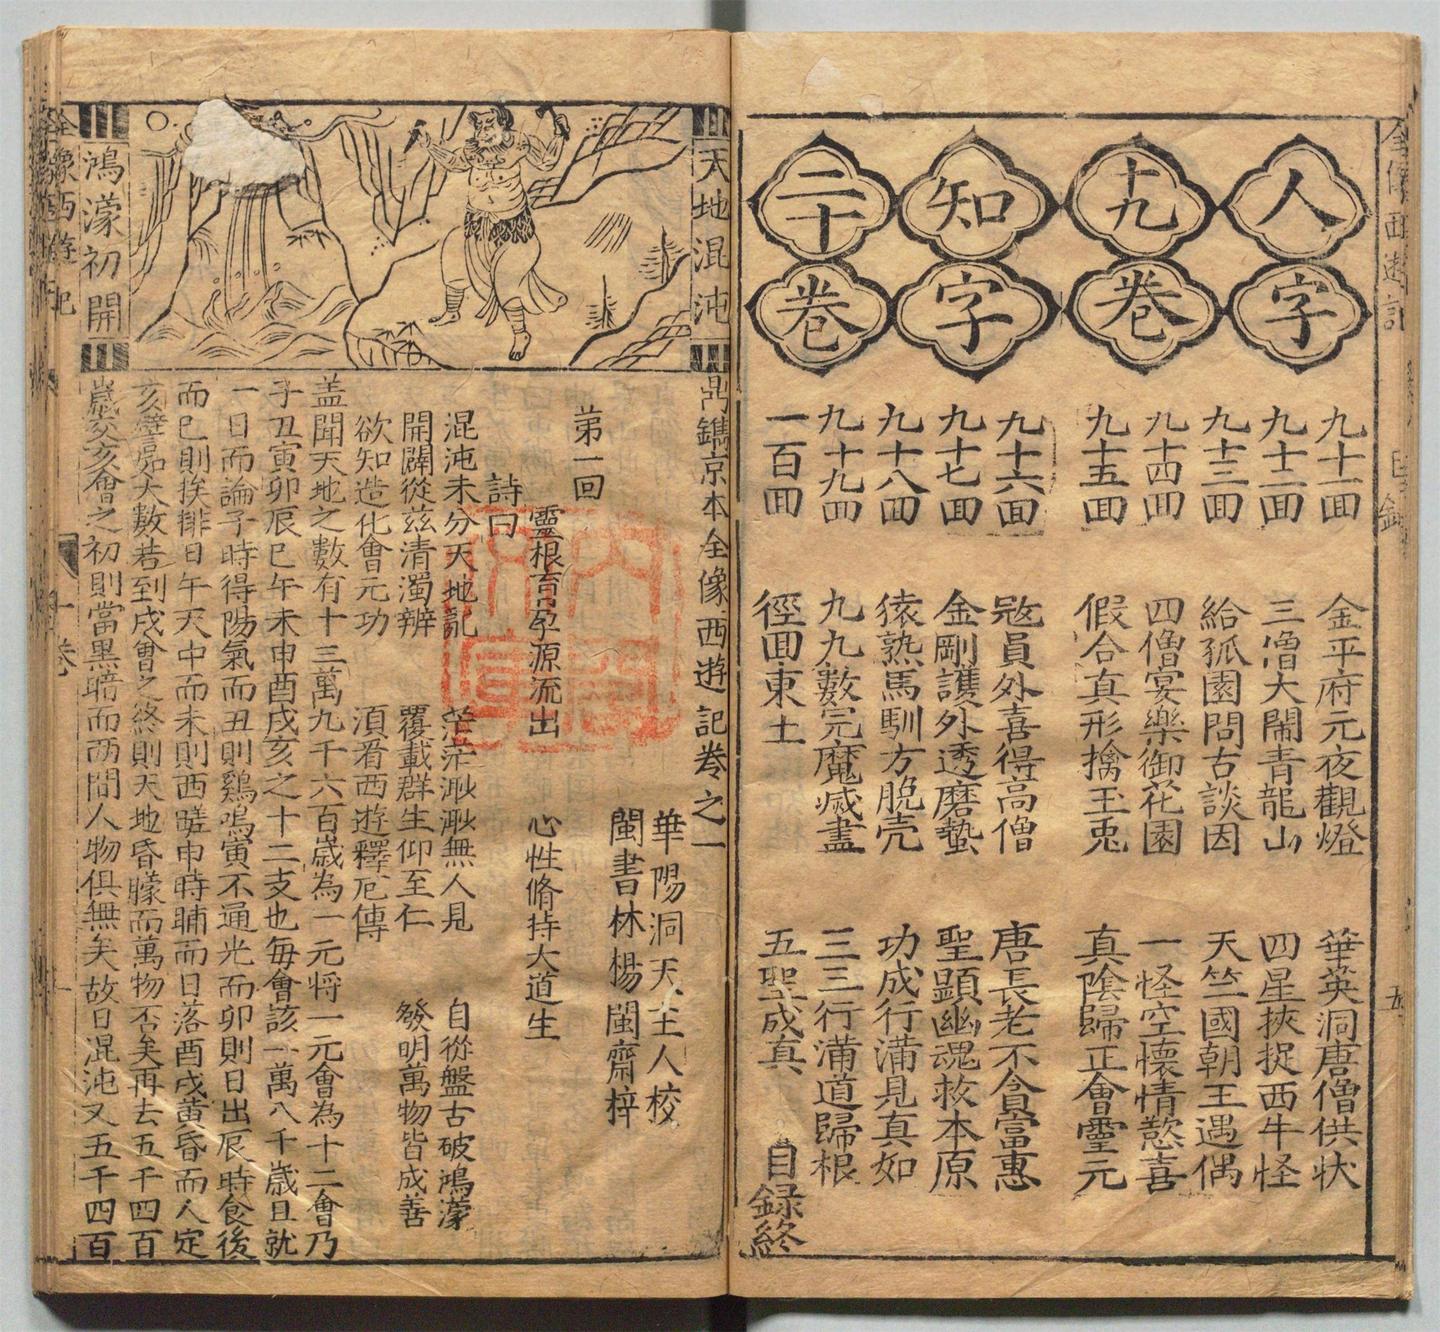 人字
十九卷
九十一回 金平府元夜觀燈 華英洞唐僧供狀
九十二回 三僧大鬧青龍山 四星挾捉西牛怪
九十三回 給孤園問古談因 天竺國朝王遇偶
九十四回 四僧宴樂御花園 一怪空懷情慾喜
九十五回 假合真形擒玉兎 真陰歸正會靈元
知字
二十卷
九十六回 㓂員外喜得高僧 唐長老不貪富惠
九十七回 金剛護外透磨蟄 聖顯幽魂救本原
九十八回 猿熟馬馴方脫壳 功成行滿見真如
九十九回 九九數完魔滅盡 三三行滿道歸根
一百回 徑回東土 五聖成真
目録終
天地混沌
鴻濛初開
鼎鐫京本全像西遊記卷之一
華陽洞天主人校
閩書林楊閩齋梓
第一回
靈根育孕源流出 心性脩持大道生
詩曰
混沌未分天地記 茫茫渺渺無人見 自從盤古破鴻濛
開闢從茲清濁辨 覆載群生仰至仁 發明萬物皆成善
欲知造化會元功 湏看西遊釋厄傳
盖聞天地之數有十三萬九千六百歲為一元将一元會為十二會乃
子丑寅卯辰巳午未申酉戌亥之十二支也每會該一萬八千歲且就
一日而論子時得陽氣而丑則鷄鳴寅不通光而卯則日出辰時食後
而巳則挨排日午天中而未則西蹉申時晡而日落酉戌黄昏而人定
亥譬於大數若到戌會之終則天地昏曚而萬物否矣再去五千四百
歲交亥會之初則當黑暗而两間人物俱無矣故曰混沌又五千四百
全像西遊記
一卷